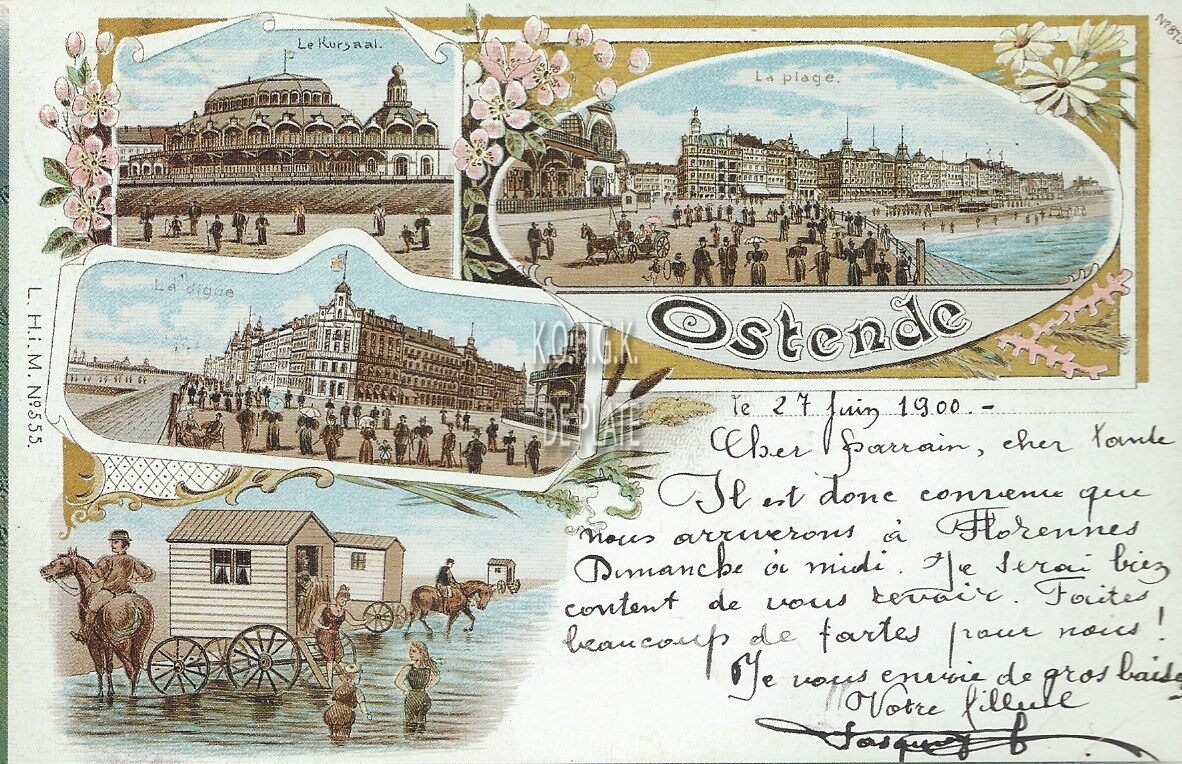 Le Kursaal.
La plage.
No 875
La digue
Ostende
L. H. i. M. No 555.
K.O.H.G.K.
DE PLATE
le 27 Juin 1900.-
Cher parrain, cher tante
Il est donc convenu que
nous arriverons à Florennes
Dimanche à midi. Je serai bien
content de vous revoir. Faites
beaucoup de tartes pour nous!
Je vous envoie de gros baisers
Votre filleul